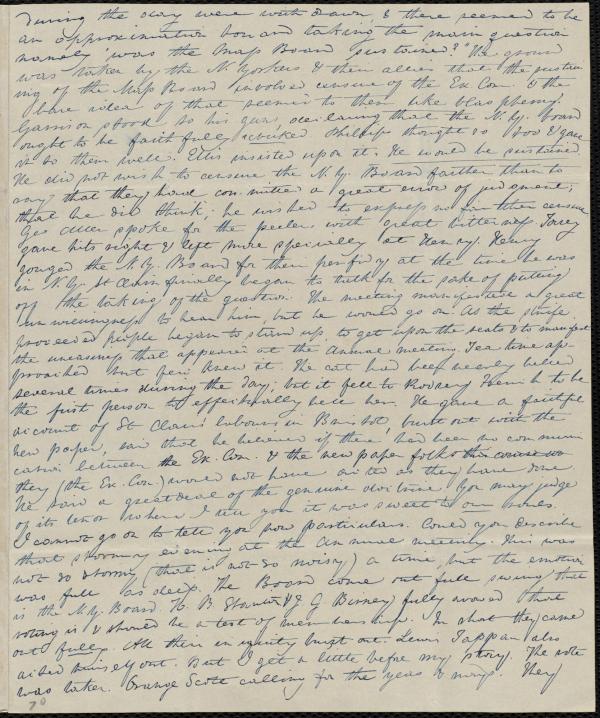 During the day were withdrawn, & there seemed to be
an approximation toward taking the main question
namely "was the Mass Board sustained?" The ground
was taken by the N. Yorkers & their allies that the sustain
ing of the Mass Board involved censure of the Ex. Com. & the
bare idea of that seemed to them like blasphemy.
Garrison stood to his guns, declaring that the N.Y. board
ought to be faithfully rebuked Phillips thought so too & gave
it to them well. Ellis insisted upon it. He would be sustained
He did not wish to censure the N.Y. Board farther than to
say that they have committed a great error of judgment,
that he did think; he wished to express no farther censure
Geo Allen spoke for the peelers with great bitterness. Torrey
gave hits right & left more specially at Henry. Henry
gouged the N.Y. Board for their perfidy at the time he was
in N.Y. St Clair finally began to talk for the sake of putting
off the taking of the question. The meeting manifested a great
unwillingness to hear him, but he would go on. As the strife
proceeded people began to stand up, to get upon the seats & to manifest
the uneasiness that appeared at the Annual meeting. Tea time ap-
proached but few knew it. The cat had been nearly belled
several times during the day, but it fell to Rodney French to be
the first person to effectually bell her. He gave a faithful
account of St Clair's labours in Bristol, burst out with the
new paper, said that he believed if there had been no communi
cation between the Ex. Com. & the new paper folks
they (the Ex. Com.) would not have acted as they have done
He said a great deal of the genuine doctrine you may judge
of its tenor when I tell you it was sweet to our souls.
I cannot go on to tell you how particulars. Could you describe
that stormy evening at the Annual meeting. This was
not so stormy (that is not so noisy) a time, but the emotion
was full as deep. The Board came out full swing that
is the N.Y. Board. H. B. Stanton & J G Birney fully avowed that
voting is & should be a test of membership. In short they came
out fully. All their iniquity burst out. Lewis Tappan also
acted himself out. But I get a little before my story. The vote
was taken. Orange Scott calling for the yeas & nays. They
70